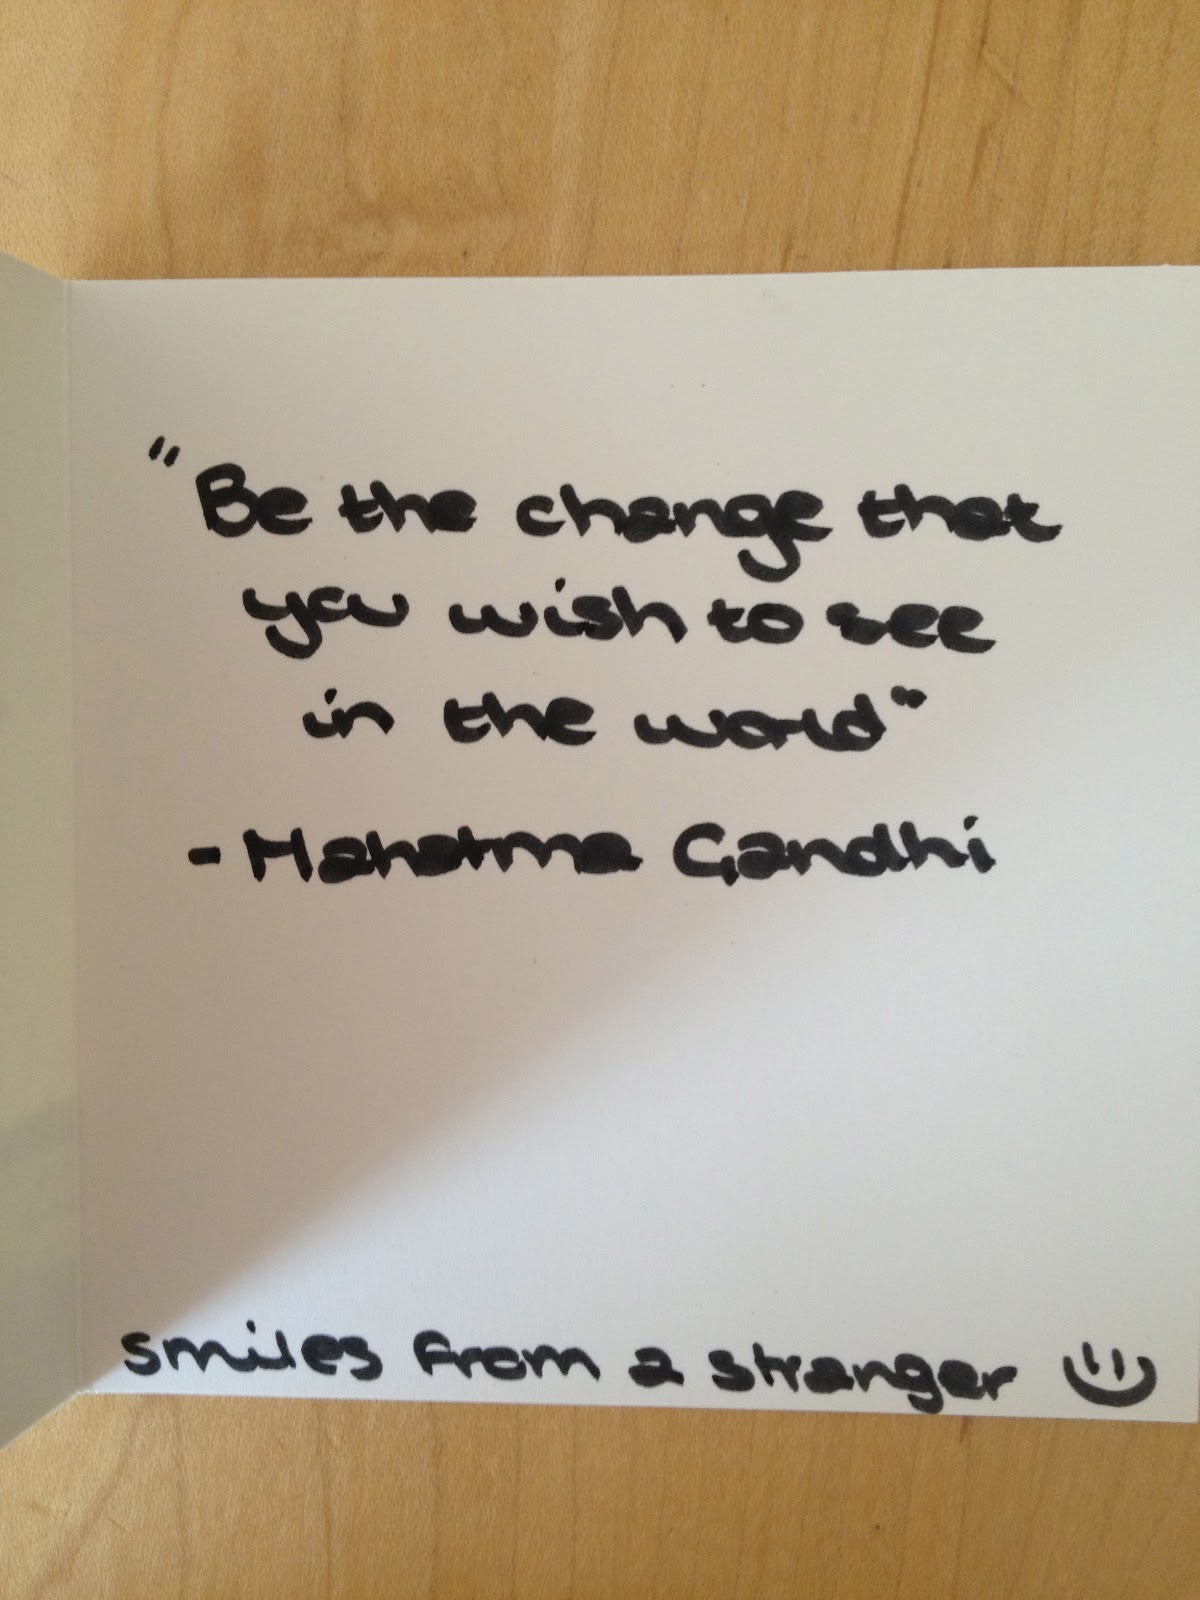 "Be the change that
you wish to see
in the world"
- Mahatma Gandhi
smiles from a stranger